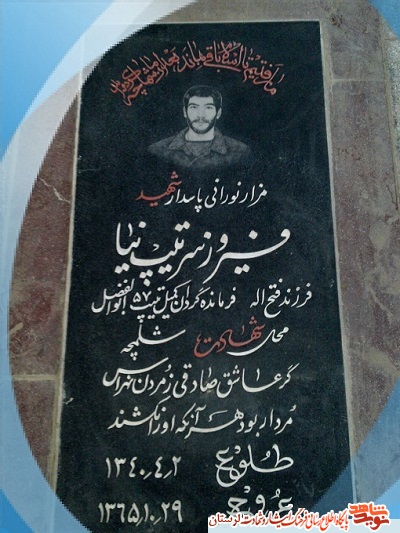 ما رفتیم
مزار نورانی پاسدار شهید
فیروز سرتیپ نیا
فرزند فتح اله فرمانده گردان کمیل تیپ ۵۷ ابوالفضل
محل شهادت شلمچه
گر عاشق صادقی ز مردن نهراس
مردار بود هر آنکه او را نکشند
طلوع ۱۳۴۰.۴.۲
عروج ۱۳۶۵.۱۰.۲۹
نوید شاهد
پایگاه اطلاع رسانی فرهنگ ایثار و شهادت لرستان